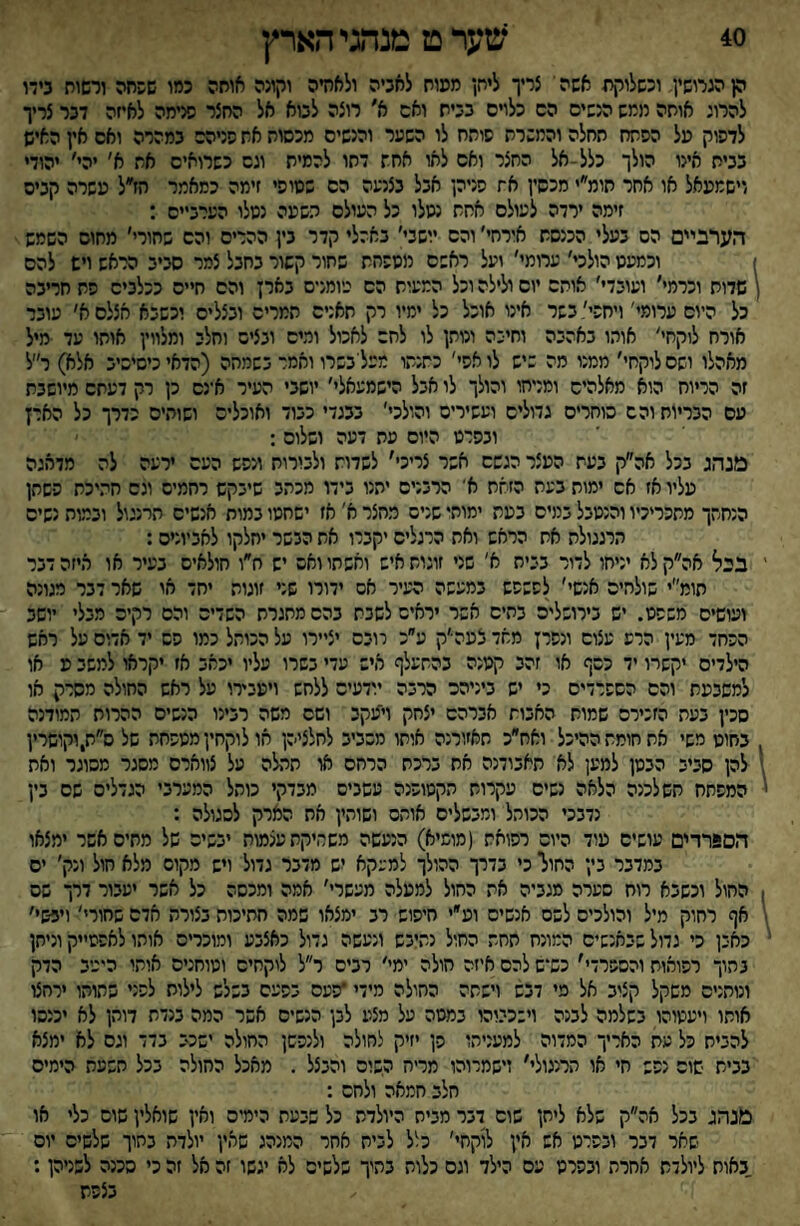 40 שער ט מנהגי הארץ
הן הגרושין. וכשלוקח אשה צריך ליתן מעות לאביה ולאחיה וקונה אותה כמו שפחה ורשות בידו
להרוג אותה ממש הנשים הם כלוים בבית ואם א' רוצה לבוא אל החצר פנימה לאיזה דבר צריך
לדפוק על הפתח תחלה והמשרת פותח לו השער והנשים מכסות את פניהם במהרה ואם אין האיש
בבית אינו הולך כלל אל החצר ואם לאו אחת דתו להמית וגם כשרואים את א' יהי' יהודי
וישמעאל או אחר תומ"י מכסין את פניהן אבל בצנעה הם שטופי זימה כמאמר חז"ל עשרה קבים
זימה ירדה לעולם אחת נטלו כל העולם תשעה נטלו הערביים :
הערביים הם בעלי הכנסת אורחי' והם יושבי' באהלי קדר בין ההרים והם שחורי' מחום השמש
וכמעט הולכי' ערומי' ועל ראשם מטפחת שחור קשור בחבל צמר סביב הראש ויש להם
שדות וכרמי' ועובדי' אותם יום ולילה וכל המעות הם טומנים בארץ והם חיים ככלבים פת חריבה
כל היום ערומי' ויחפי' בשר אינו אוכל כל ימיו רק תאנים תמרים ובצלים וכשבא אצלם א' עובר
אורח לוקחי' אותו באהבה וחיבה ונותן לו לחם לאכול ומים ובצים וחלב ומלווין אותו עד מיל
מאהלו ושם לוקחי' ממנו מה שיש לו אפי' כתנתו מעל בשרו ואמר בשמחה
זה הריות הוא מאלהים ומניחו והולך לו אבל הישמעאלי' יושבי העיר אינם כן רק דעתם מיושבת
עם הבריות והם סוחרים גדולים ועשירים והולכי' בבגדי כבוד ואוכלים ושותים כדרך כל הארץ
ובפרט היום עת דעה ושלום :
מנהג בכל אה"ק בעת העצר הגשם אשר צריכי' לשדות ולבורות ונפש העם ירעה לה מדאגה
עליו אז אם ימות בעת הזאת א' הרבנים יתנו בידו מכתב שיבקש רחמים וגם חתיכת פשתן
הנחתך מתכריכיו והנטבל במים בעת ימותי שנים מחצר א' אז ישחטו במות אנשים תרנגול ובמות נשים
תרנגולת את הראש ואת הרגלים יקברו את הבשר יחלקו לאביונים :
בכל אה"ק לא יניחו לדור בבית א' שני זוגות איש ואשתו ואם יש ח"ו חולאים בעיר או איזה דבר
תומ"י שולחים אנשי' לפשפש במעשה העיר אם ידורו שני זוגות יחד או שאר דבר מגונה
ועושים משפט. יש בירושלים בתים אשר יראים לשבת בהם מחגרת השדים והם רקים מבלי יושב
הפחד מעין הרע עצום ונפרץ מאד בעה"ק ע"כ רובם יציירו על הכותל כמו פס יד אדום על ראש
הילדים יקשרו יד כסף או זהב קטנה בהתעלף איש עדי בשרו עליו יכאב אז יקראו למשבע או
למשבעת והם הספרדים כי יש ביניהם הרבה יודעים ללחש ויעבירו על ראש החולה מסרק או
סכין בעת הזכירם שמות האבות אברהם יצחק ויעקב ושם משה רבינו הנשים ההרות תמודנה
בחוט משי את חומת ההיכל ואח"כ תאזורנה אותו מסביב לחלציהן או לוקחין מטפחת של ס"ת,וקושרין
להן סביב הבטן למען לא תאבודנה את ברכת הרחם או תתלה על צוארם מסגר מסוגר ואת
המפתח תשלכנה הלאה נשים עקרות תקטופנה עשבים מבדקי כותל המערבי הגדלים שם בין
נדבכי הכותל ומבשלים אותם ושותין את המרק לסגולה :
הספרדים עושים עוד היום רפואת (מומיא) הנעשה משחיקת עצמות יבשים של מתים אשר ימצאו
במדבר בין החול כי בדרך ההולך למעקא יש מדבר גדול ויש מקום מלא חול ונק' ים
החול וכשבא רוח סערה מגביה את החול למעלה מעשרי' אמה ומכסה כל אשר יעבור דרך שם
אף רחוק מיל והולכים לשם אנשים וע"י חיפוש רב ימצאו שמה חתיכות בצורת אדם שחורי' ויבשי'
כאבן כי גדול שבאנשים המונח תחת החול נתיבש ונעשה גדול כאצבע ומוכרים אותו לאפטייק וניתן
בתוך רפואות והספרדי' כשיש להם איזה חולה ימי' רבים ר"ל לוקחים וטוחנים אותו היטב הדק
ונותנים משקל קצוב אל מי דבש וישתה החולה מידי פעם בפעם בשלש לילות לפני שתותו ירחצו
אותו ויעטוהו בשלמה לבנה וישכבוהו במטה על מצע לבן הנשים אשר המה בנדת דותן לא יכנסו
להבית כל עת האריך המדוה למעניתו פן יזיק לחולה ולנפשן החולה ישכב בדד וגם לא ימצא
בבית שום נפש חי או תרנגולי' וישמרוהו מריח השום והבצל . מאכל החולה בכל תשעת הימים
חלב חמאה ולחם :
מנהג בכל אה"ק שלא ליתן שום דבר מבית היולדת כל שבעת הימים ואין שואלין שום כלי או
שאר דבר ובפרט אש אין לוקחי' כלל לבית אחר המנהג שאין יולדת בתוך שלשים יום
באות ליולדת אחרת ובפרט עם הילד וגם כלות בתוך שלשים לא יגשו זה אל זה כי סכנה לשניהן :
בצפת